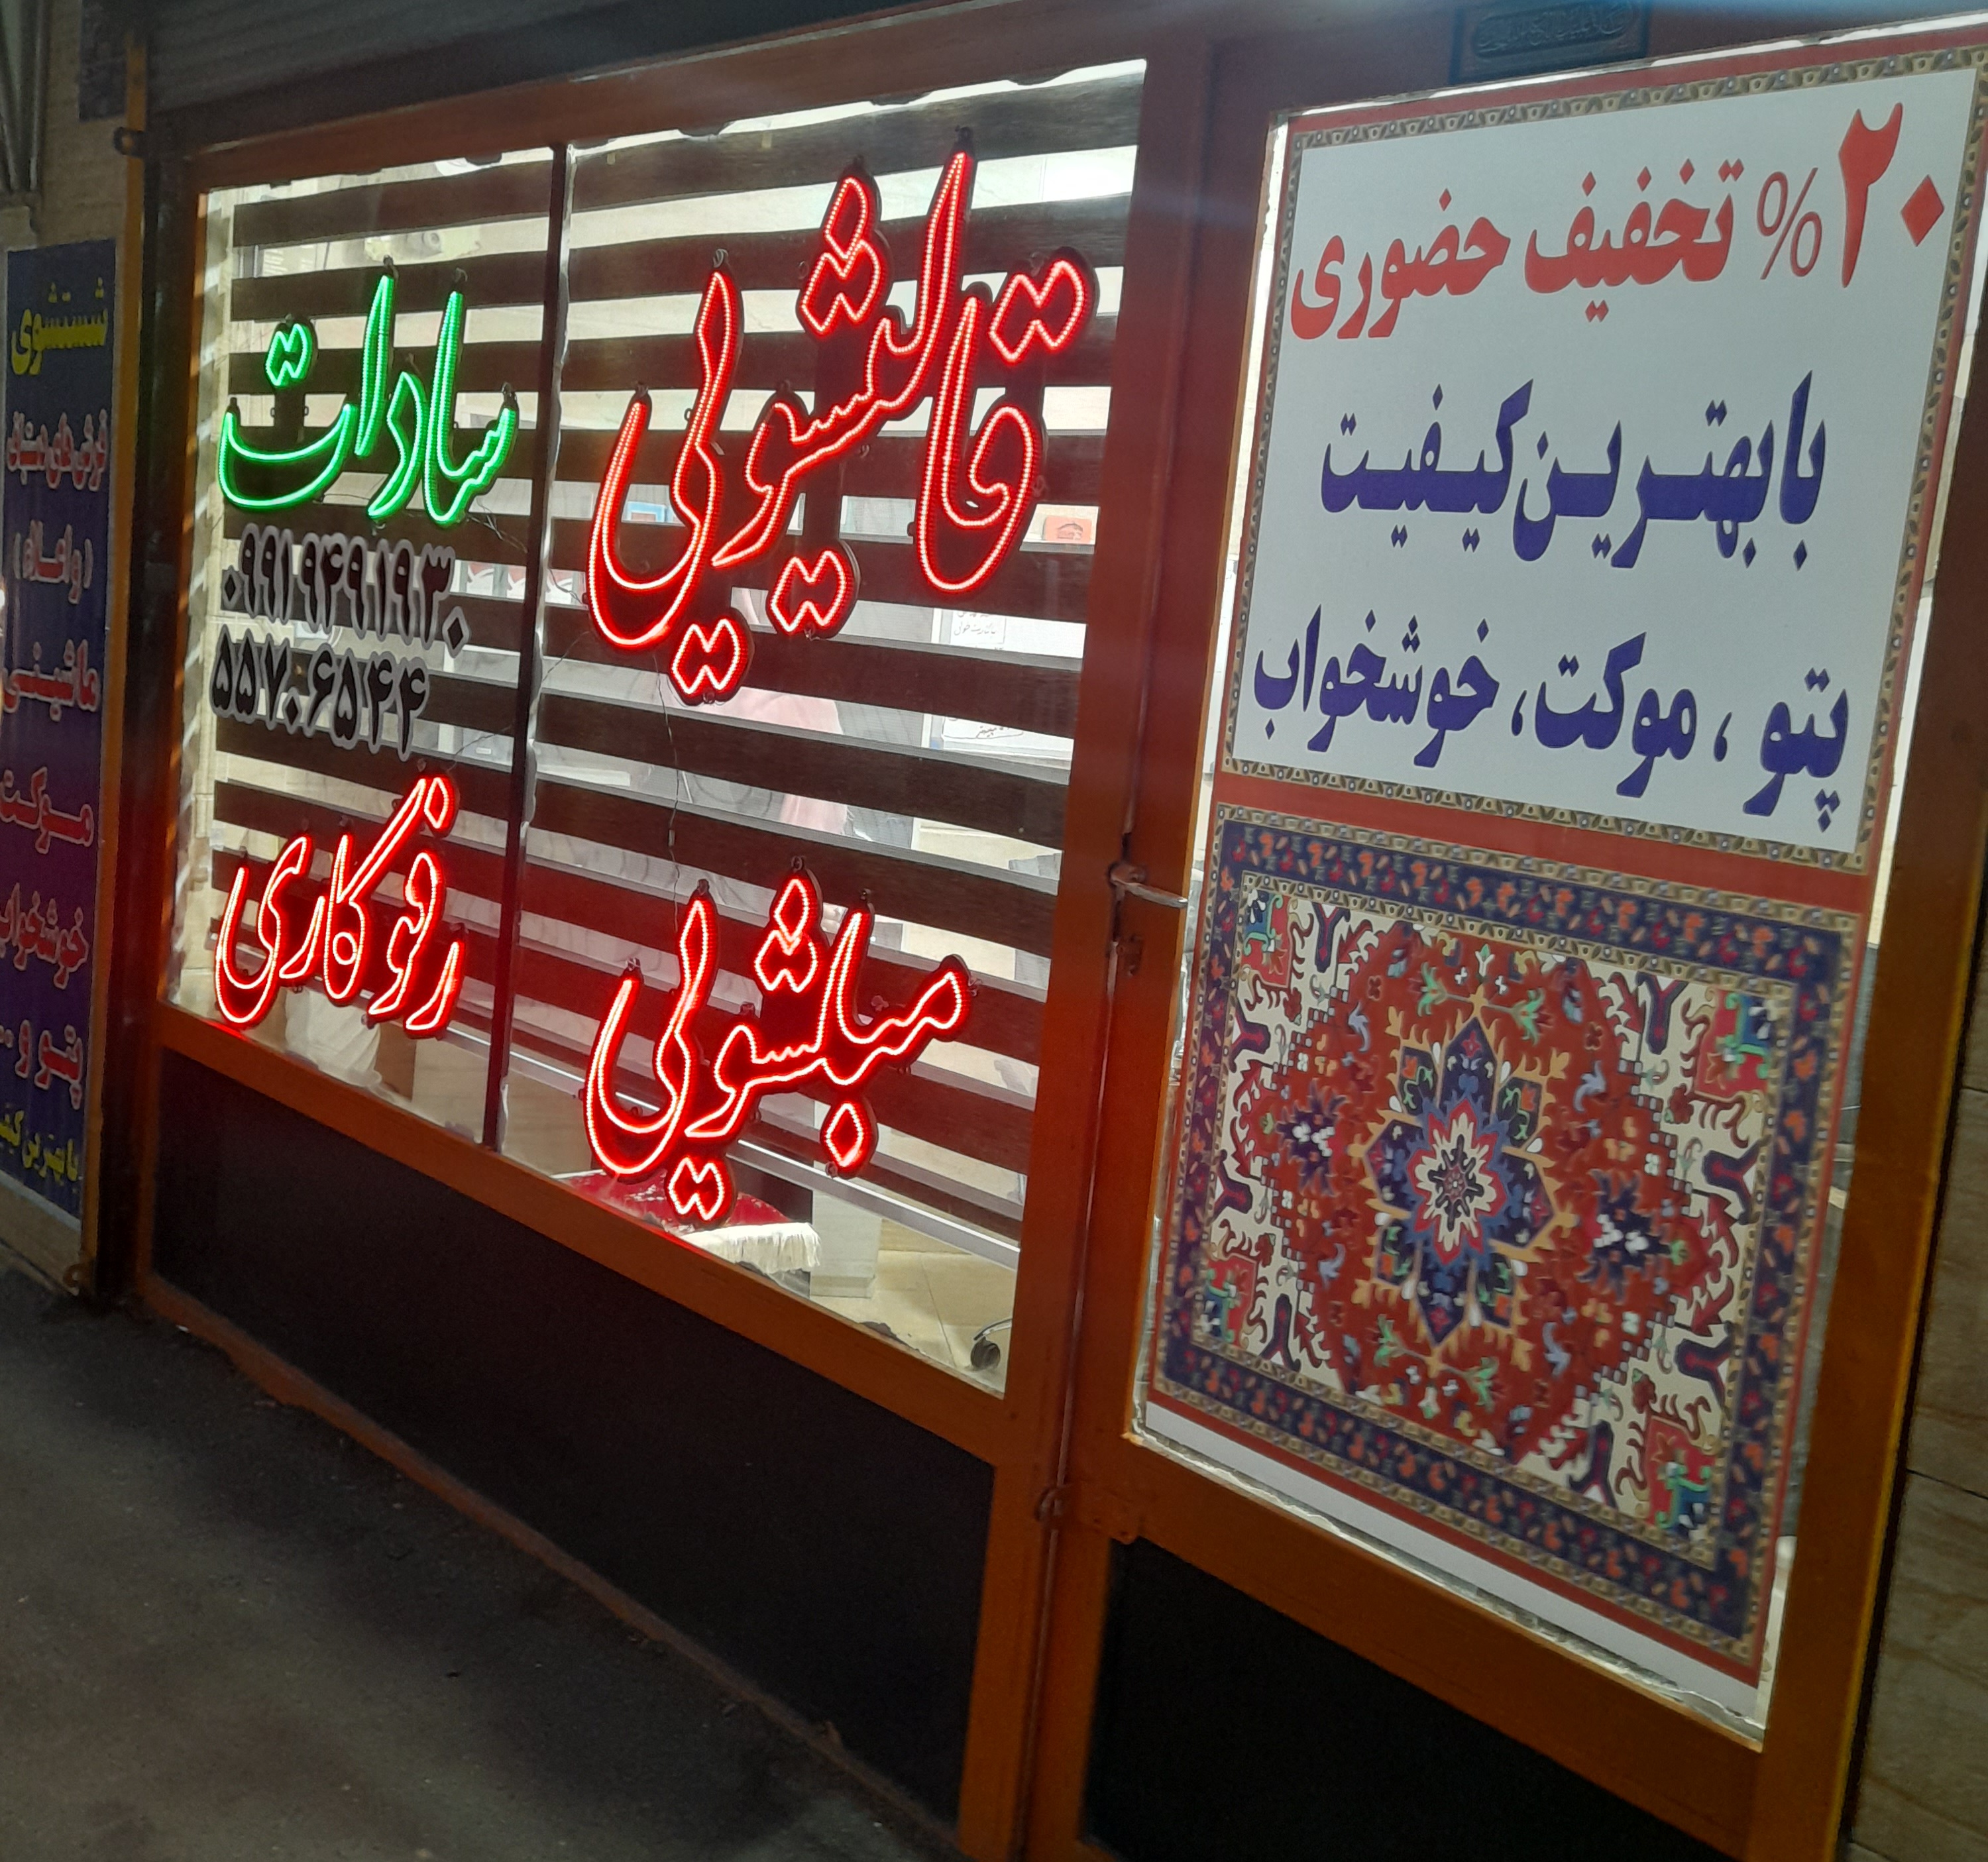 ۲۰% تخفیف حضوری
با بهترین کیفیت
پتو ، موکت، خوشخواب
قالیشویی
سادات
۰۹۹۱۹۴۹۱۹۳۰
۵۵۷۰۶۵۴۴
مبلشویی
رفوکاری
شستشوی
فرش های دستبافی
ماشینی
موکت
خوشخواب
پتو و ...